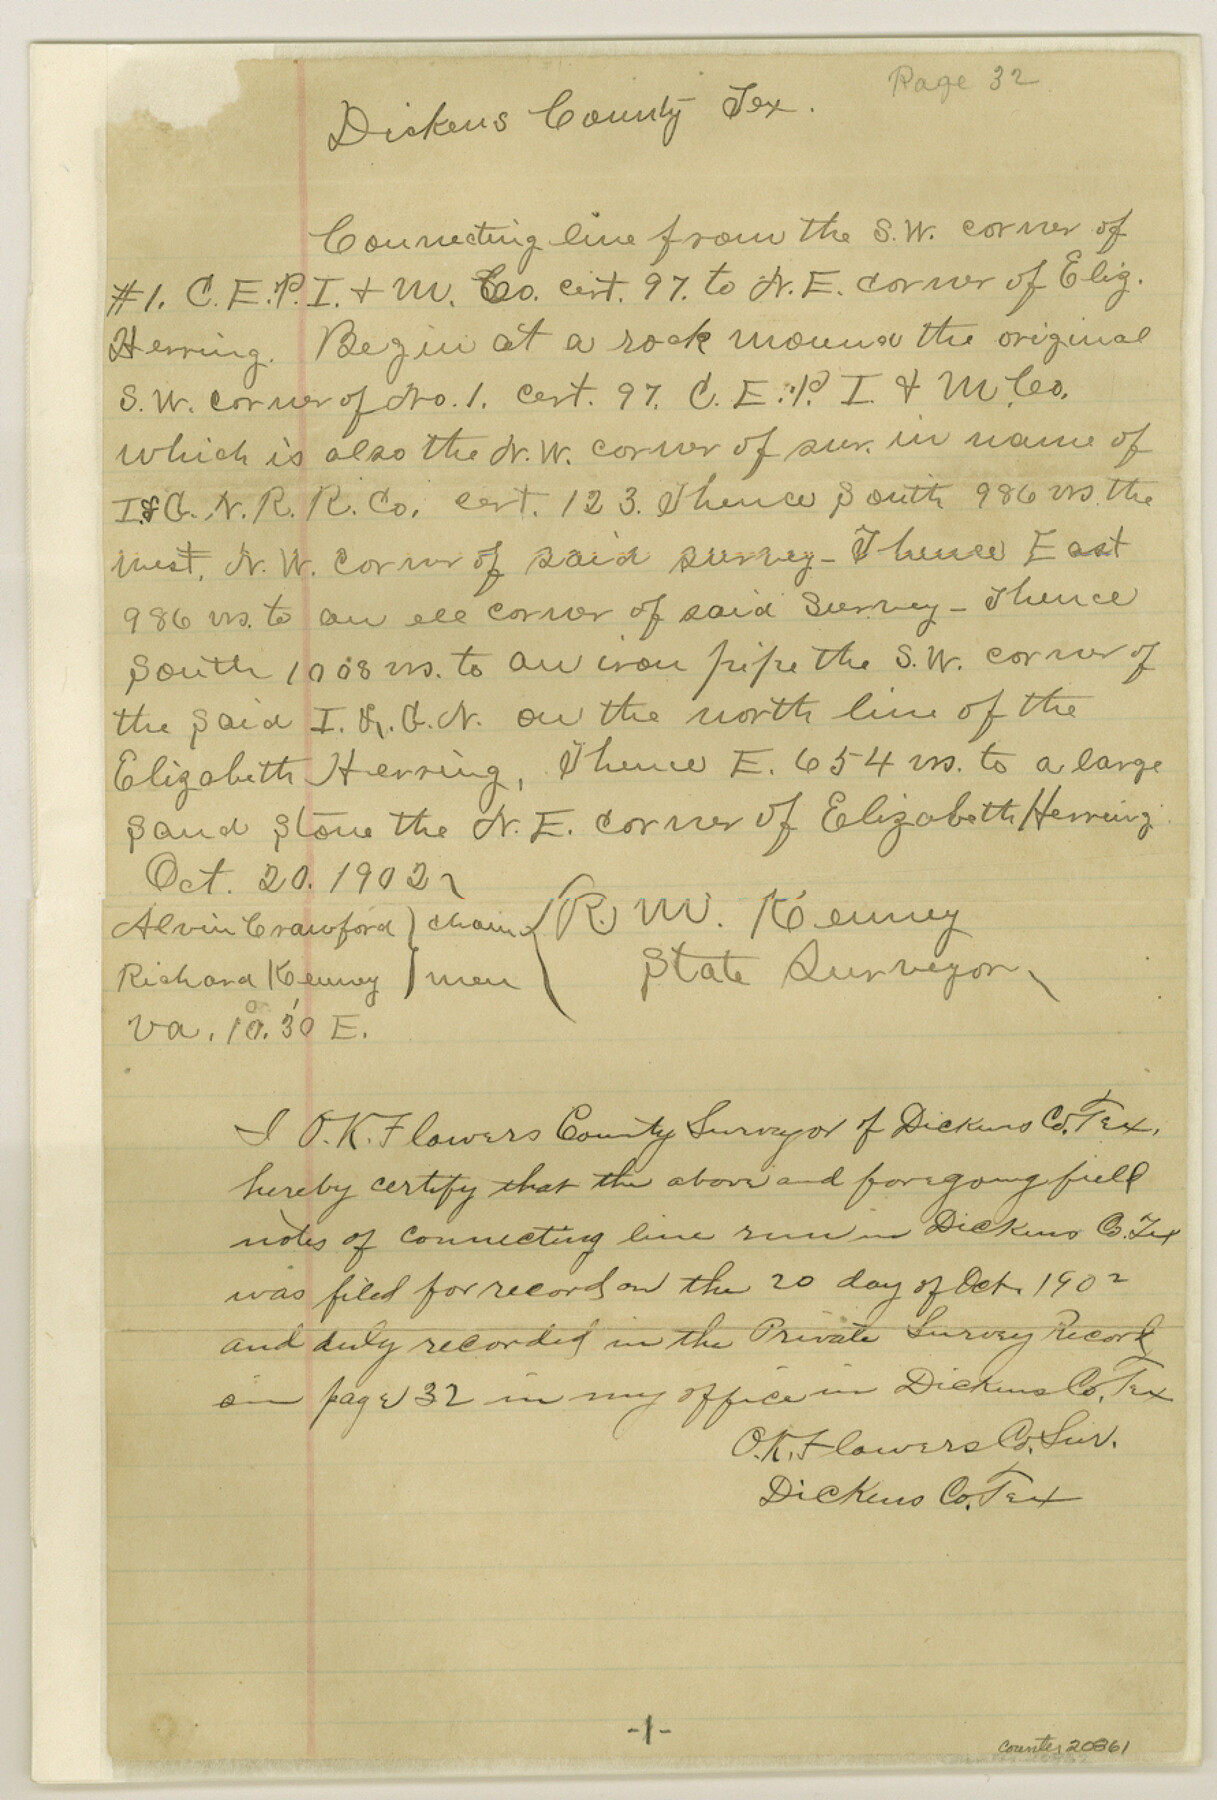 Page 32
Dickens County Tex.
Connecting line from the S.W. corner of
#1. C. E. P. I. & M. Co. cert. 97. to N. E. corner of Eliz.
Herring. Begin at a rock mound the original
S. W. corner of No. 1. cert. 97. C. E. P. I. & M. Co.
which is also the N. W. corner of sur. in name of
I. & G. N. R. R. Co. cert. 123. Thence South 986 vrs. the
west. N. W. corner of said survey - Thence East
986 vrs. to an ell corner of said survey - Thence
South 1008 vrs. to an iron pipe the S. W. corner of
the said I. & G. N. on the north line of the
Elizabeth Herring, Thence E. 654 vrs. to a large
sand stone the N. E. corner of Elizabeth Herring.
Oct. 20. 1902
Alvin Crawford } chain { R. M. Kenney
Richard Kenney } men State Surveyor
Va. 10°. 30' E.
I O. K. Flowers County Surveyor of Dickens Co. Tex.
hereby certify that the above and foregoing field
notes of connecting line run in Dickens Co. Tex
was filed for record on the 20 day of Oct. 1902
and duly recorded in the Private Survey Record
on page 32 in my office in Dickens Co. Tex
O. K. Flowers Co. Sur.
Dickens Co. Tex
-1-
counter 20861